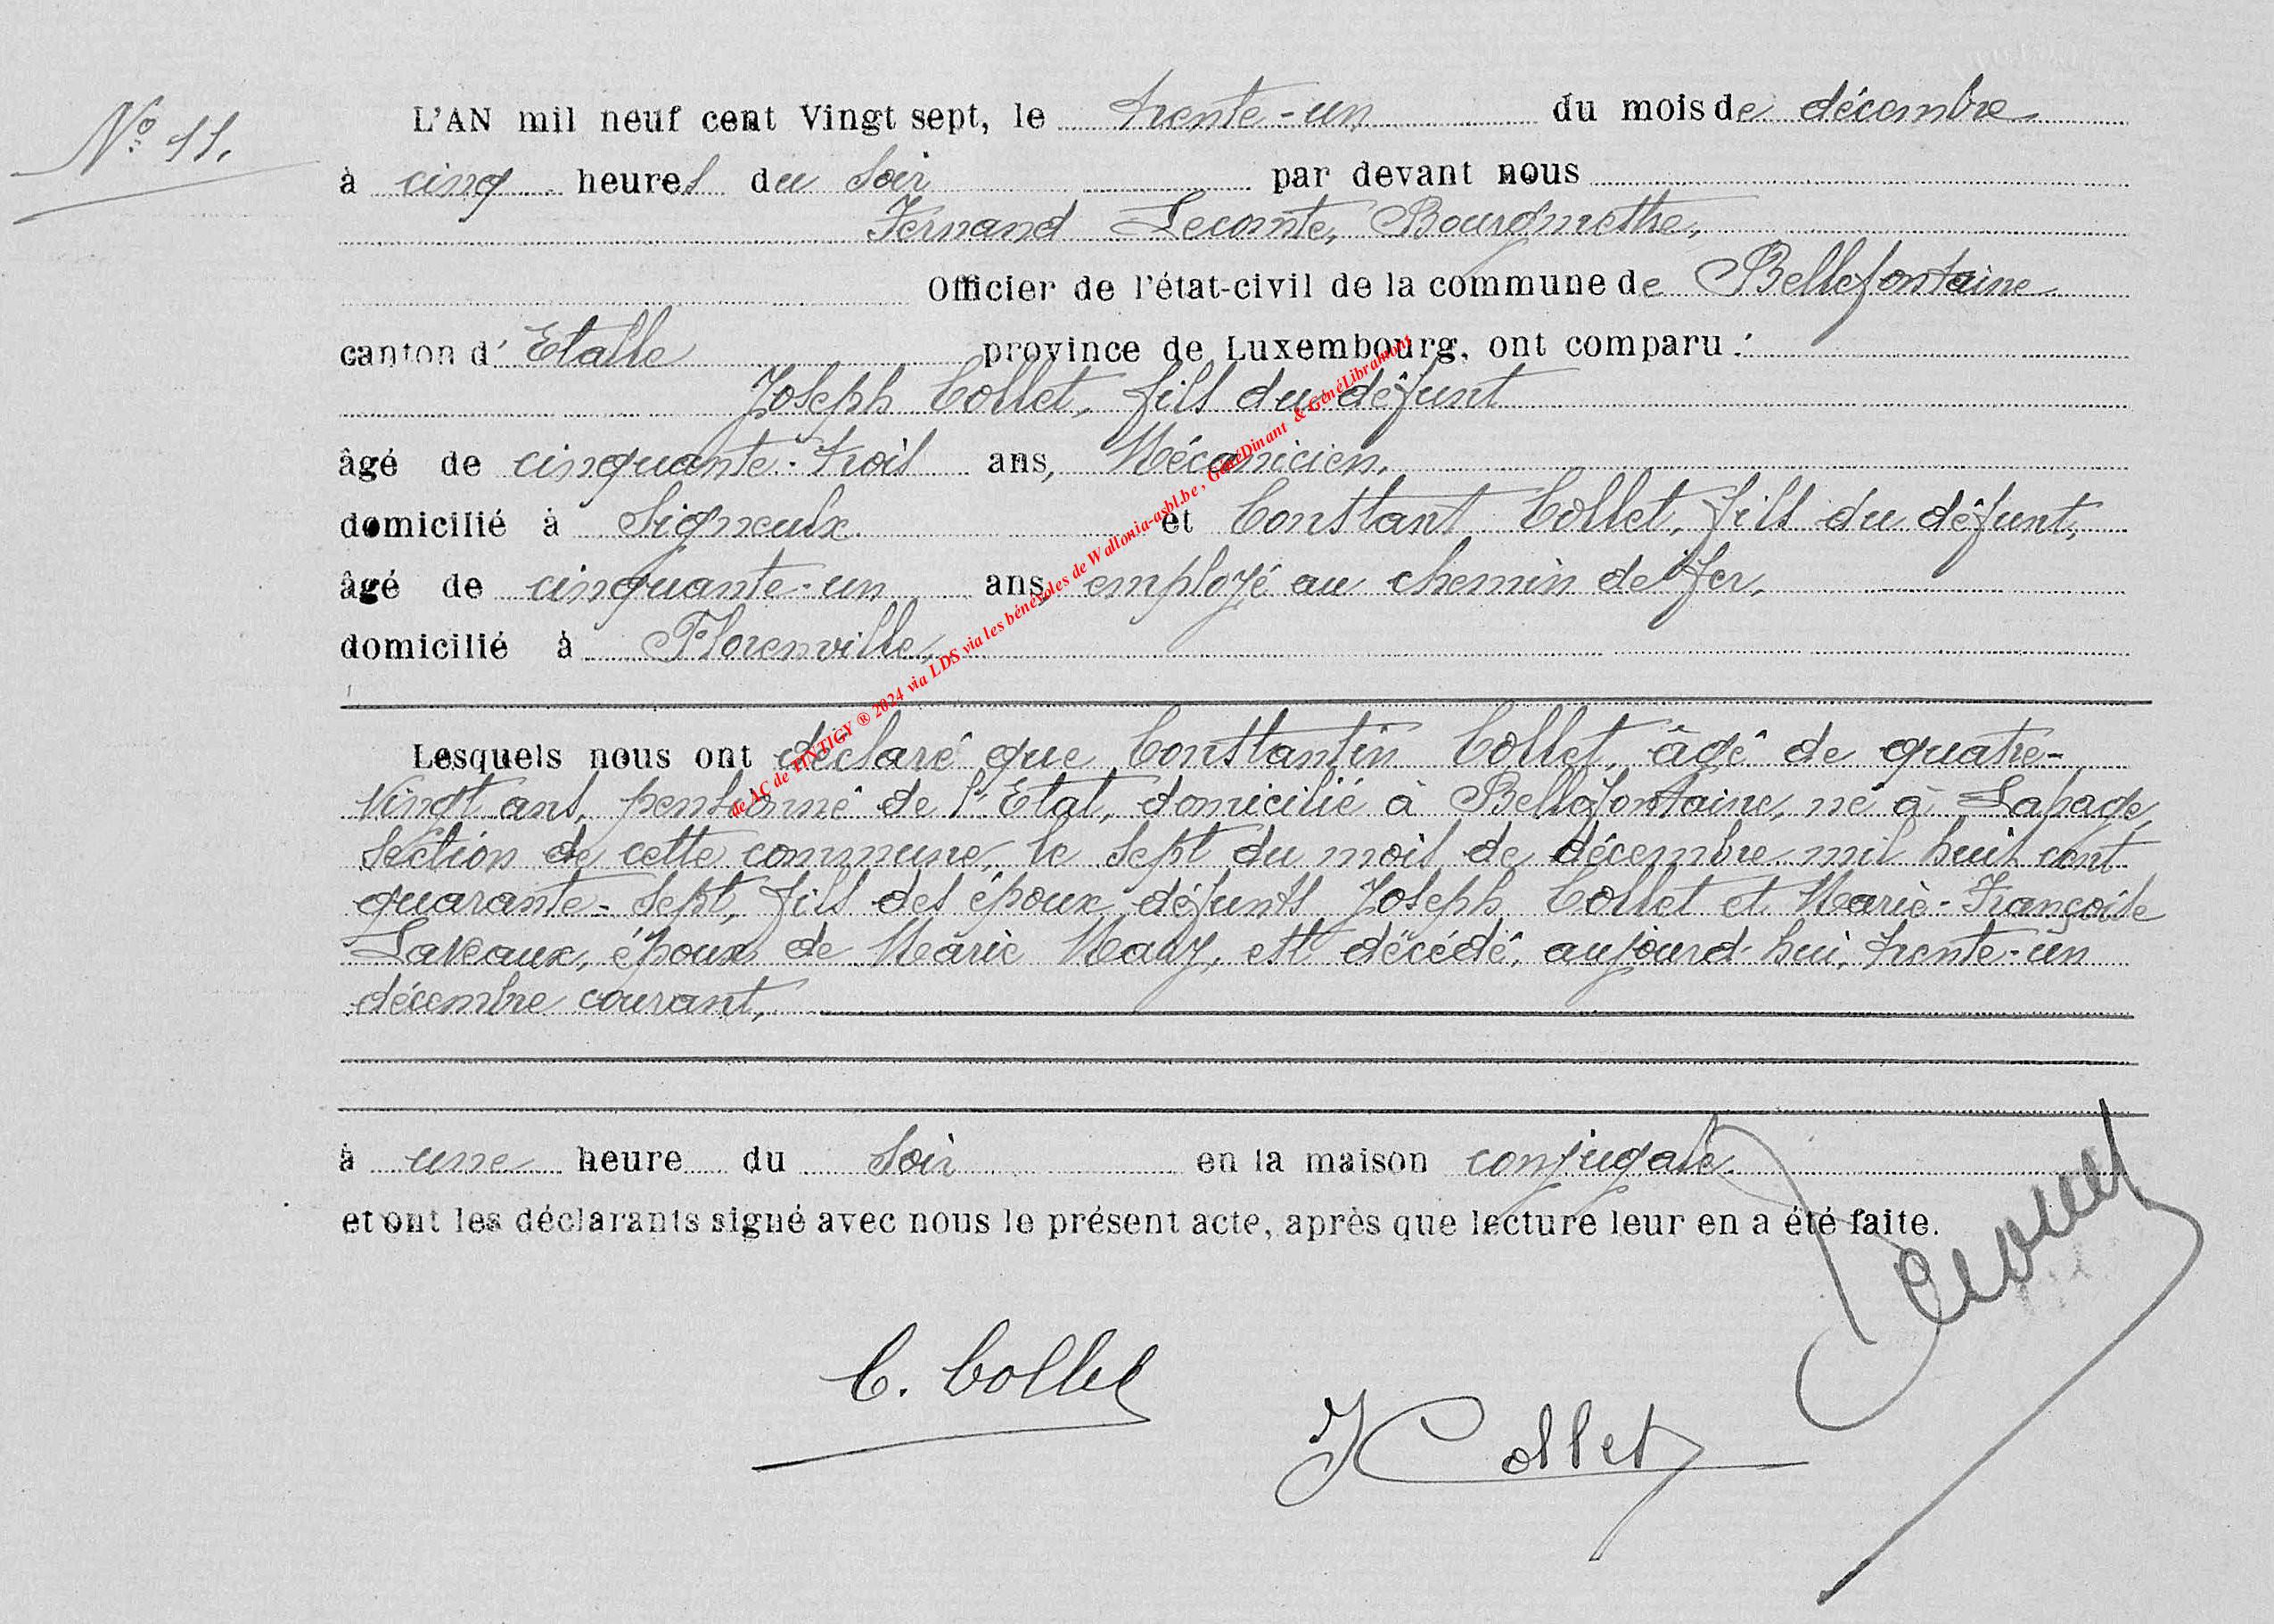 N° 11.
L'AN mil neuf cent Vingt sept, le trente-un du mois de décembre
à cinq heures du soir par devant nous
Fernand Lecomte, Bourgmestre,
Officier de l'état-civil de la commune de Bellefontaine
canton d'Etalle province de Luxembourg, ont comparu :
Joseph Collet, fils du défunt
âgé de cinquante-trois ans, Mécanicien,
domicilié à Signeulx et Constant Collet, fils du défunt,
âgé de cinquante-un ans, employé au chemin de fer,
domicilié à Florenville,
Lesquels nous ont déclaré que Constantin Collet, âgé de quatre-
vingt ans, pensionné de l'Etat, domicilié à Bellefontaine, né à Lahage,
section de cette commune, le sept du mois de décembre mil huit cent
quarante-sept, fils des époux défunts Joseph Collet et Marie-Françoise
Laveaux, époux de Marie Mauy, est décédé, aujourd'hui, trente-un
décembre courant,
à une heure du soir en la maison conjugale.
et ont les déclarants signé avec nous le présent acte, après que lecture leur en a été faite.
C. Collet
J Collet
de AC de TINTIGY ® 2024 via LDS via les bénévoles de Wallonia-asbl.be , GénéDinant & GénéLibramont